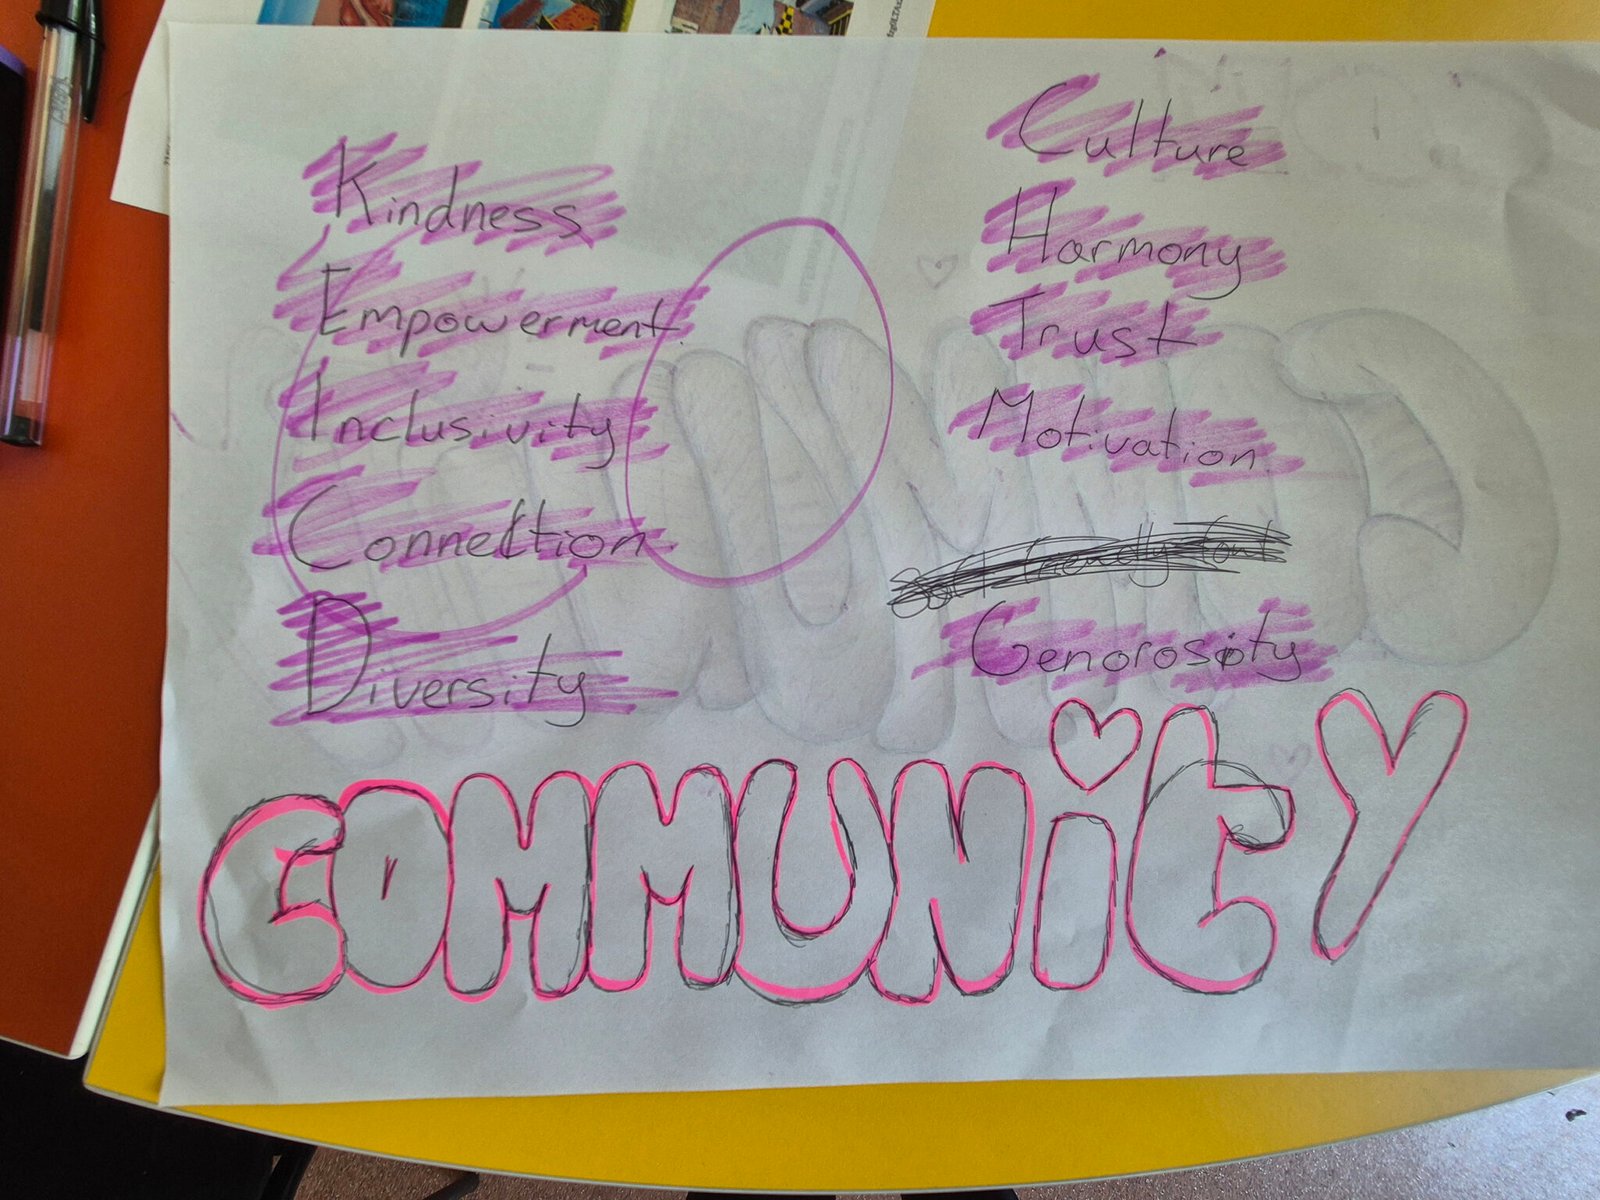 Kindness
Empowerment.
Inclusivity
Connection
Diversity
Culture
Harmony
Trust
Motivation
Soft friendly font
Generosity
COMMUNitY